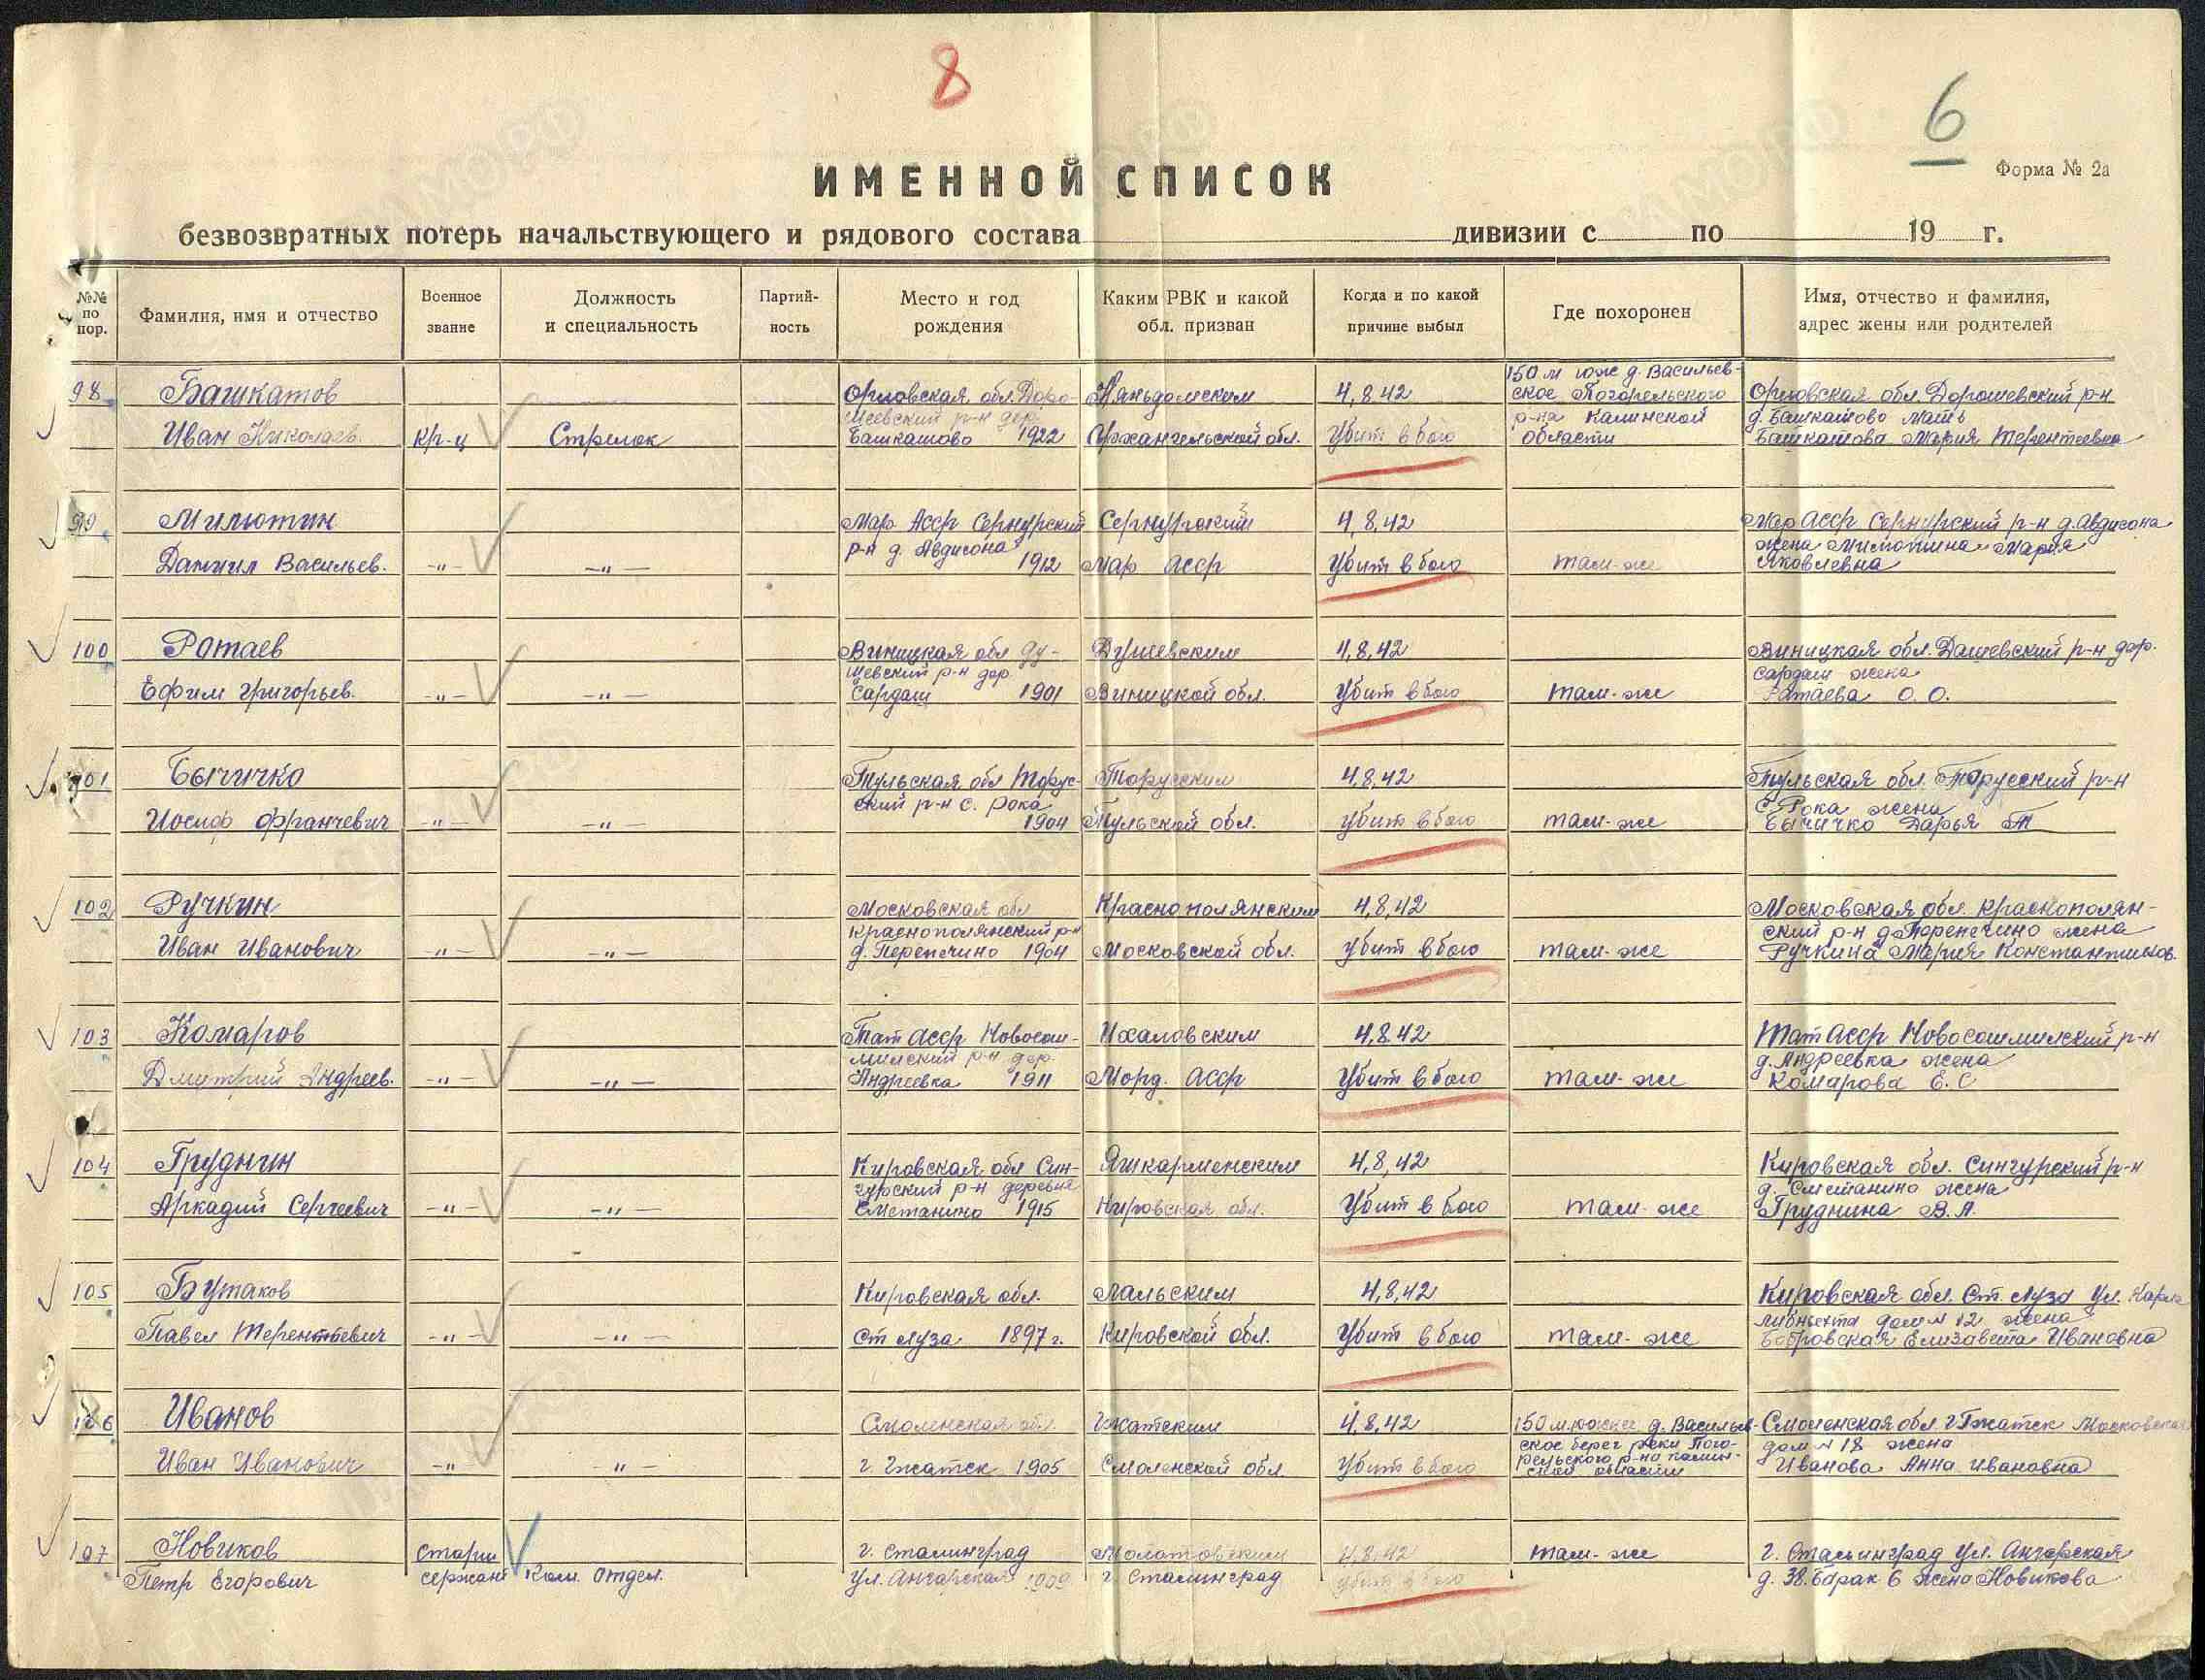 8
6
Форма № 2а
ИМЕННОЙ СПИСОК
безвозвратных потерь начальствующего и рядового состава дивизии с по 19 г.
№№ по пор.
Фамилия, имя и отчество
Военное звание
Должность и специальность
Партий-ность
Место и год рождения
Каким РВК и какой обл. призван
Когда и по какой причине выбыл
Где похоронен
Имя, отчество и фамилия, адрес жены или родителей
98
Башкатов
Иван Николаев.
кр-ц
Стрелок
Орловская обл. Доро-
шевский р-н дер.
Башкатово 1922
Няндомским
Архангельской обл.
4,8,42
Убит в бою
150 м юж д. Васильев-
ское Погорельского
р-на Калинской
области
Орловская обл. Дорошевский р-н
д. Башкатово мать
Башкатова Мария Терентьевна
99
Милютин
Даниил Васильев.
-"-
-"-
Мар Асср Сернурский
р-н д. Авдисола
1912
Сернурский
Мар асср
4,8,42
Убит в бою
там-же
Мар Асср Сернурский р-н д. Авдисола
жена Милютина Мария
Яковлевна
100
Ратаев
Ефим Григорьев.
-"-
-"-
Виницкая обл Ду-
шевский р-н дер
Сардаш 1901
Душевским
Виницкой обл.
4,8,42
Убит в бою
там-же
Виницкая обл. Дашевский р-н дер.
Сардаш жена
Ратаева О.О.
101
Бычичко
Иосиф Францевич
-"-
-"-
Тульская обл Торус-
ский р-н с. Рока
1904
Торусским
Тульской обл.
4,8,42
убит в бою
там-же
Тульская обл. Торусский р-н
с. Рока жена
Бычичко Дарья Т
102
Ручкин
Иван Иванович
-"-
-"-
Московская обл
Краснополянский р-н
д. Перепечино 1904
Краснополянским
Московской обл.
4,8,42
убит в бою
там-же
Московская обл. Краснополян-
ский р-н д. Перепечино жена
Ручкина Мария Константинов.
103
Комаров
Дмитрий Андреев.
-"-
-"-
Тат асср Новосош-
минский р-н дер.
Андреевка 1911
Ихаловским
Морд. асср
4,8,42
Убит в бою
там-же
Тат асср Новосошминский р-н
д. Андреевка жена
Комарова Е.С
104
Груднин
Аркадий Сергеевич
-"-
-"-
Кировская обл Син-
гурский р-н деревня
Сметанино 1915
Яшкарменским
Кировская обл.
4,8,42
Убит в бою
там-же
Кировская обл. Сингурский р-н
д. Сметанино жена
Груднина В.А.
105
Бутаков
Павел Терентьевич
-"-
-"-
Кировская обл.
Ст луза 1897 г.
Лальским
Кировской обл.
4,8,42
Убит в бою
там-же
Кировская обл. Ст. луза ул. Карла
либкнехта дом N 12 жена
Бобровская Елизавета Ивановна
106
Иванов
Иван Иванович
-"-
-"-
Смоленская обл.
г. Гжатск 1905
Гжатским
Смоленской обл.
4,8,42
Убит в бою
150 м южнее д. Васильев-
ское берег реки Пого-
рельского р-на Калин-
ской области
Смоленская обл г Гжатск Московская
дом N 18 жена
Иванова Анна Ивановна
107
Новиков
Петр Егорович
старш
сержант
Ком. отдел.
г. Сталинград
ул. Ангарская 1909
Молотовским
г. Сталинград
4,8,42
убит в бою
там-же
г. Сталинград ул. Ангарская
д. 38. барак 6 жена Новикова